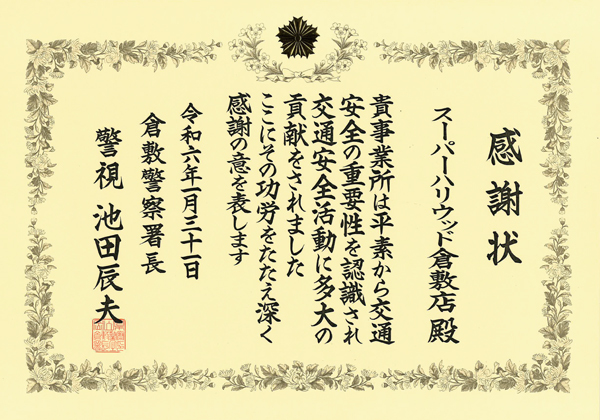 感謝状
スーパーハリウッド倉敷店 殿
貴事業所は平素から交通
安全の重要性を認識され
交通安全活動に多大の
貢献をされました
ここにその功労をたたえ深く
感謝の意を表します
令和六年一月三十一日
倉敷警察署長
警視 池田辰夫